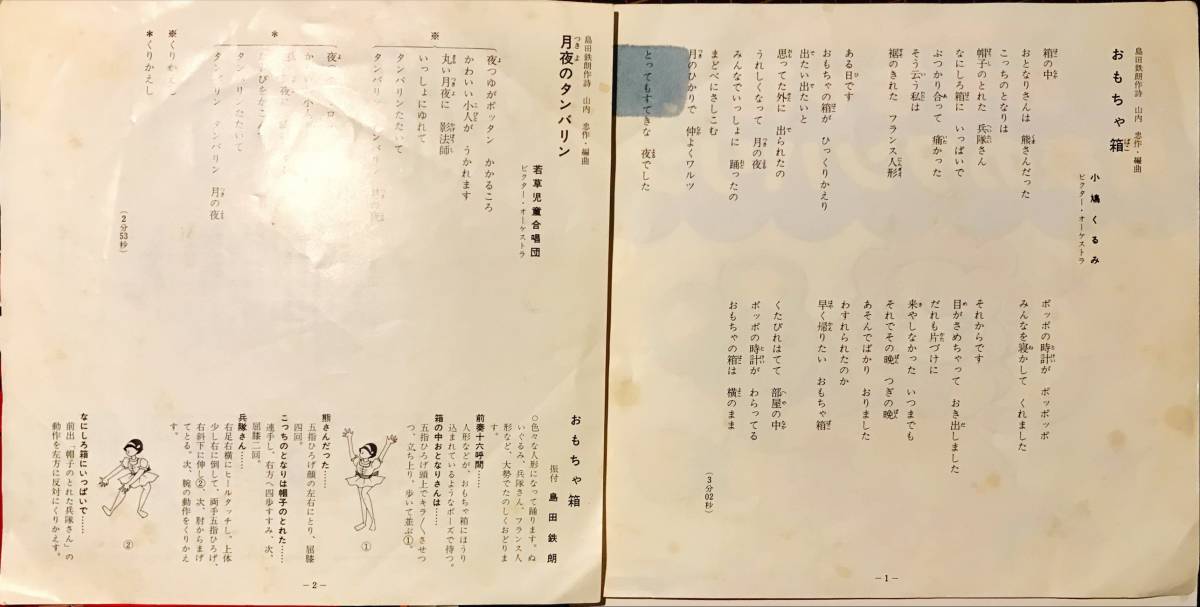 おもちゃ箱
島田鉄朗作詩 山内 忠作・編曲
小鳩くるみ
ビクター・オーケストラ
箱の中
おとなりさんは 熊さんだった
こっちのとなりは
帽子のとれた 兵隊さん
なにしろ箱に いっぱいで
ぶつかり合って 痛かった
そう云う私は
裾のきれた フランス人形
ある日です
おもちゃの箱が ひっくりかえり
出たい出たいと
思ってた外に 出られたの
うれしくなって 月の夜
みんなでいっしょに 踊ったの
まどべにさしこむ
月のひかりで 仲よくワルツ
とってもすてきな 夜でした
ポッポの時計が ポッポッポ
みんなを寝かして くれました
それからです
目がさめちゃって おき出しました
だれも片づけに
来やしなかった いつまでも
それでその晩 つぎの晩
あそんでばかり おりました
わすれられたのか
早く帰りたい おもちゃ箱
くたびれはてて 部屋の中
ポッポの時計が わらってる
おもちゃの箱は 横のまま
(3分02秒)
—1—
月夜のタンバリン
島田鉄朗作詩 山内 忠作・編曲
若草児童合唱団
ビクター・オーケストラ
夜つゆがポッタン かかるころ
かわいい小人が うかれます
※
丸い月夜に 影法師
いっしょにゆれて
タンバリンたたいて
タンバリン
月の夜
＊くりかえし
(2分53秒)
おもちゃ箱
振付 島田鉄朗
○色々な人形になって踊ります。ぬ
いぐるみ、兵隊さん、フランス人
形など、大勢でたのしくおどりま
す。
前奏十六呼間……
人形などが、おもちゃ箱にほうり
込まれているようなポーズで待つ。
箱の中おとなりさんは……
五指ひろげ頭上でキラ〳〵させつ
つ、立ち上り、歩いて並ぶ①。
①
熊さんだった……
五指ひろげ顔の左右にとり、屈膝
四回。
こっちのとなりは帽子のとれた……
連手し、右方へ四歩すすみ、次、
屈膝二回。
兵隊さん……
右足右横にヒールタッチし、上体
少し右に倒して、両手五指ひろげ、
右斜下に伸し②、次、肘からまげ
てとる。次、腕の動作をくりかえ
す。
②
なにしろ箱にいっぱいで……
前出「帽子のとれた兵隊さん」の
動作を左方反対にくりかえす。
—2—